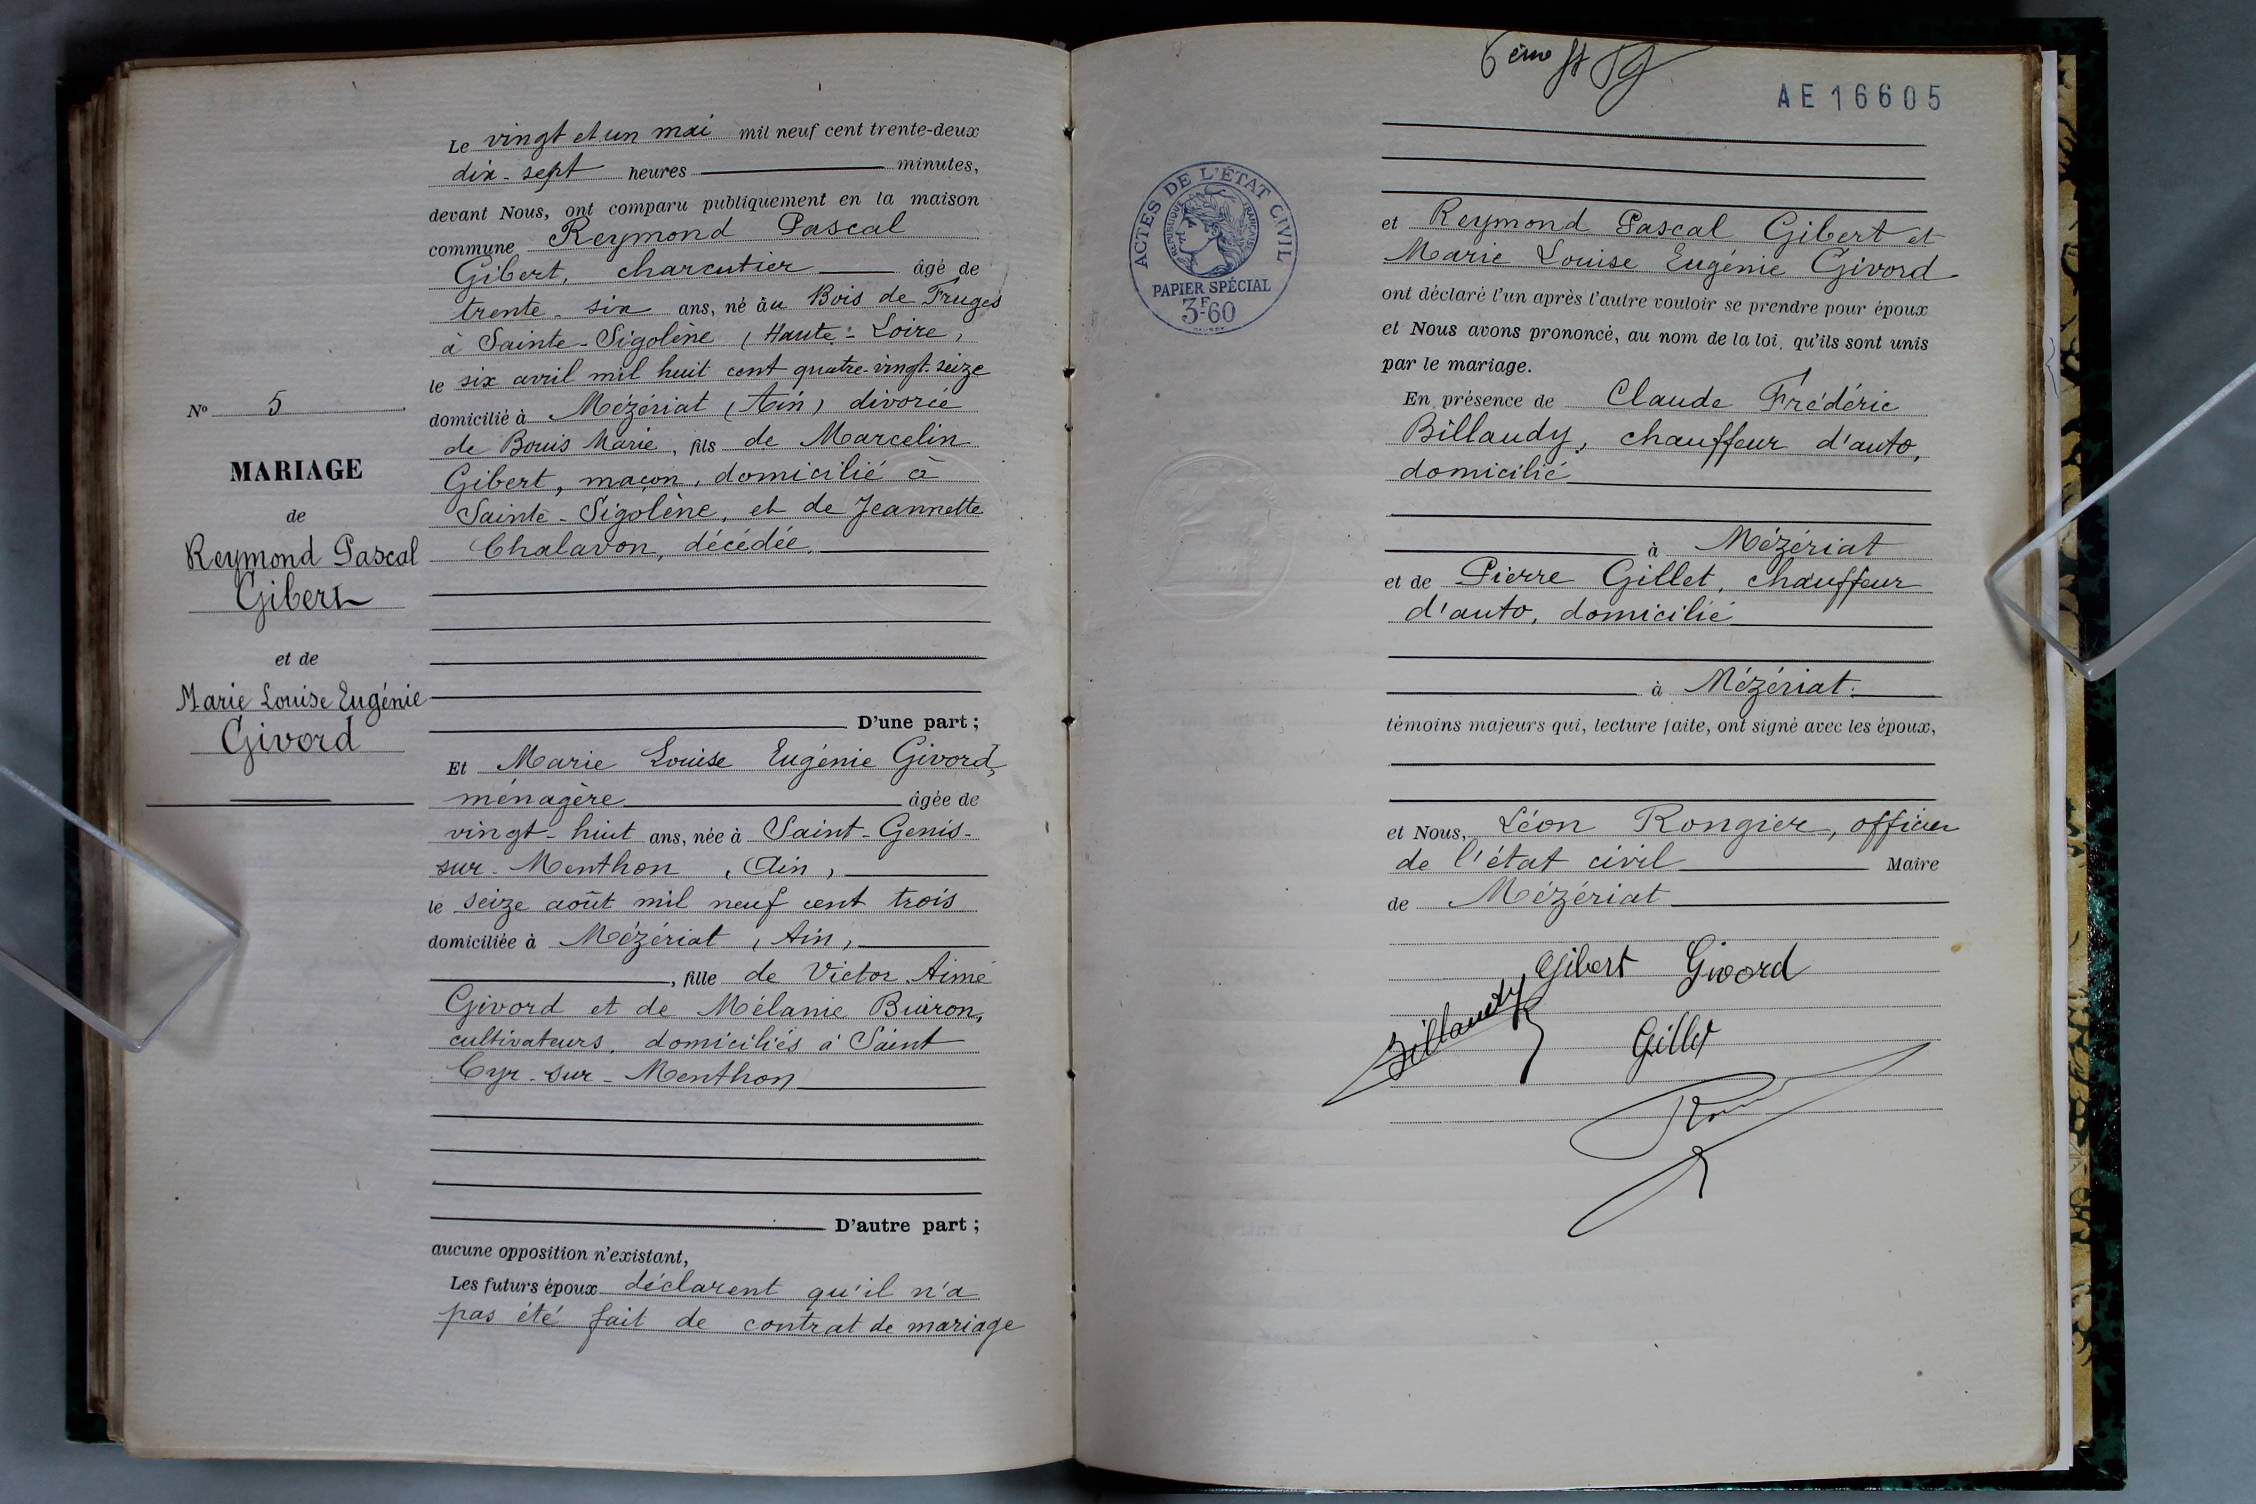 N° 5
MARIAGE
de
Reymond Pascal
Gibert
et de
Marie Louise Eugénie
Givord
Le vingt et un mai mil neuf cent trente-deux
dix-sept heures minutes,
devant Nous, ont comparu publiquement en la maison
commune Reymond Pascal
Gibert, charcutier âgé de
trente-six ans, né au Bois de Fruges
à Sainte-Sigolène (Haute-Loire)
le six avril mil huit cent quatre-vingt-seize
domicilié à Mézériat (Ain) divorcé
de Bouis Marie, fils de Marcelin
Gibert, maçon, domicilié à
Sainte-Sigolène, et de Jeannette
Chalavon, décédée.
D'une part ;
Et Marie Louise Eugénie Givord,
ménagère âgée de
vingt-huit ans, née à Saint-Genis-
sur-Menthon (Ain)
le seize août mil neuf cent trois
domiciliée à Mézériat (Ain)
, fille de Victor Aimé
Givord et de Mélanie Buiron,
cultivateurs, domiciliés à Saint
Cyr-sur-Menthon
D'autre part ;
aucune opposition n'existant,
Les futurs époux déclarent qu'il n'a
pas été fait de contrat de mariage
6ème
AE 16605
ACTES DE L'ÉTAT CIVIL
RÉPUBLIQUE FRANÇAISE
PAPIER SPÉCIAL
3F60
et Reymond Pascal Gibert et
Marie Louise Eugénie Givord
ont déclaré l'un après l'autre vouloir se prendre pour époux
et Nous avons prononcé, au nom de la loi, qu'ils sont unis
par le mariage.
En présence de Claude Frédéric
Billaudy, chauffeur d'auto,
domicilié
à Mézériat
et de Pierre Gillet, chauffeur
d'auto, domicilié
à Mézériat.
témoins majeurs qui, lecture faite, ont signé avec les époux,
et Nous, Léon Rongier, officier
de l'état civil Maire
de Mézériat
Gibert Givord
Billaudy
Gillet